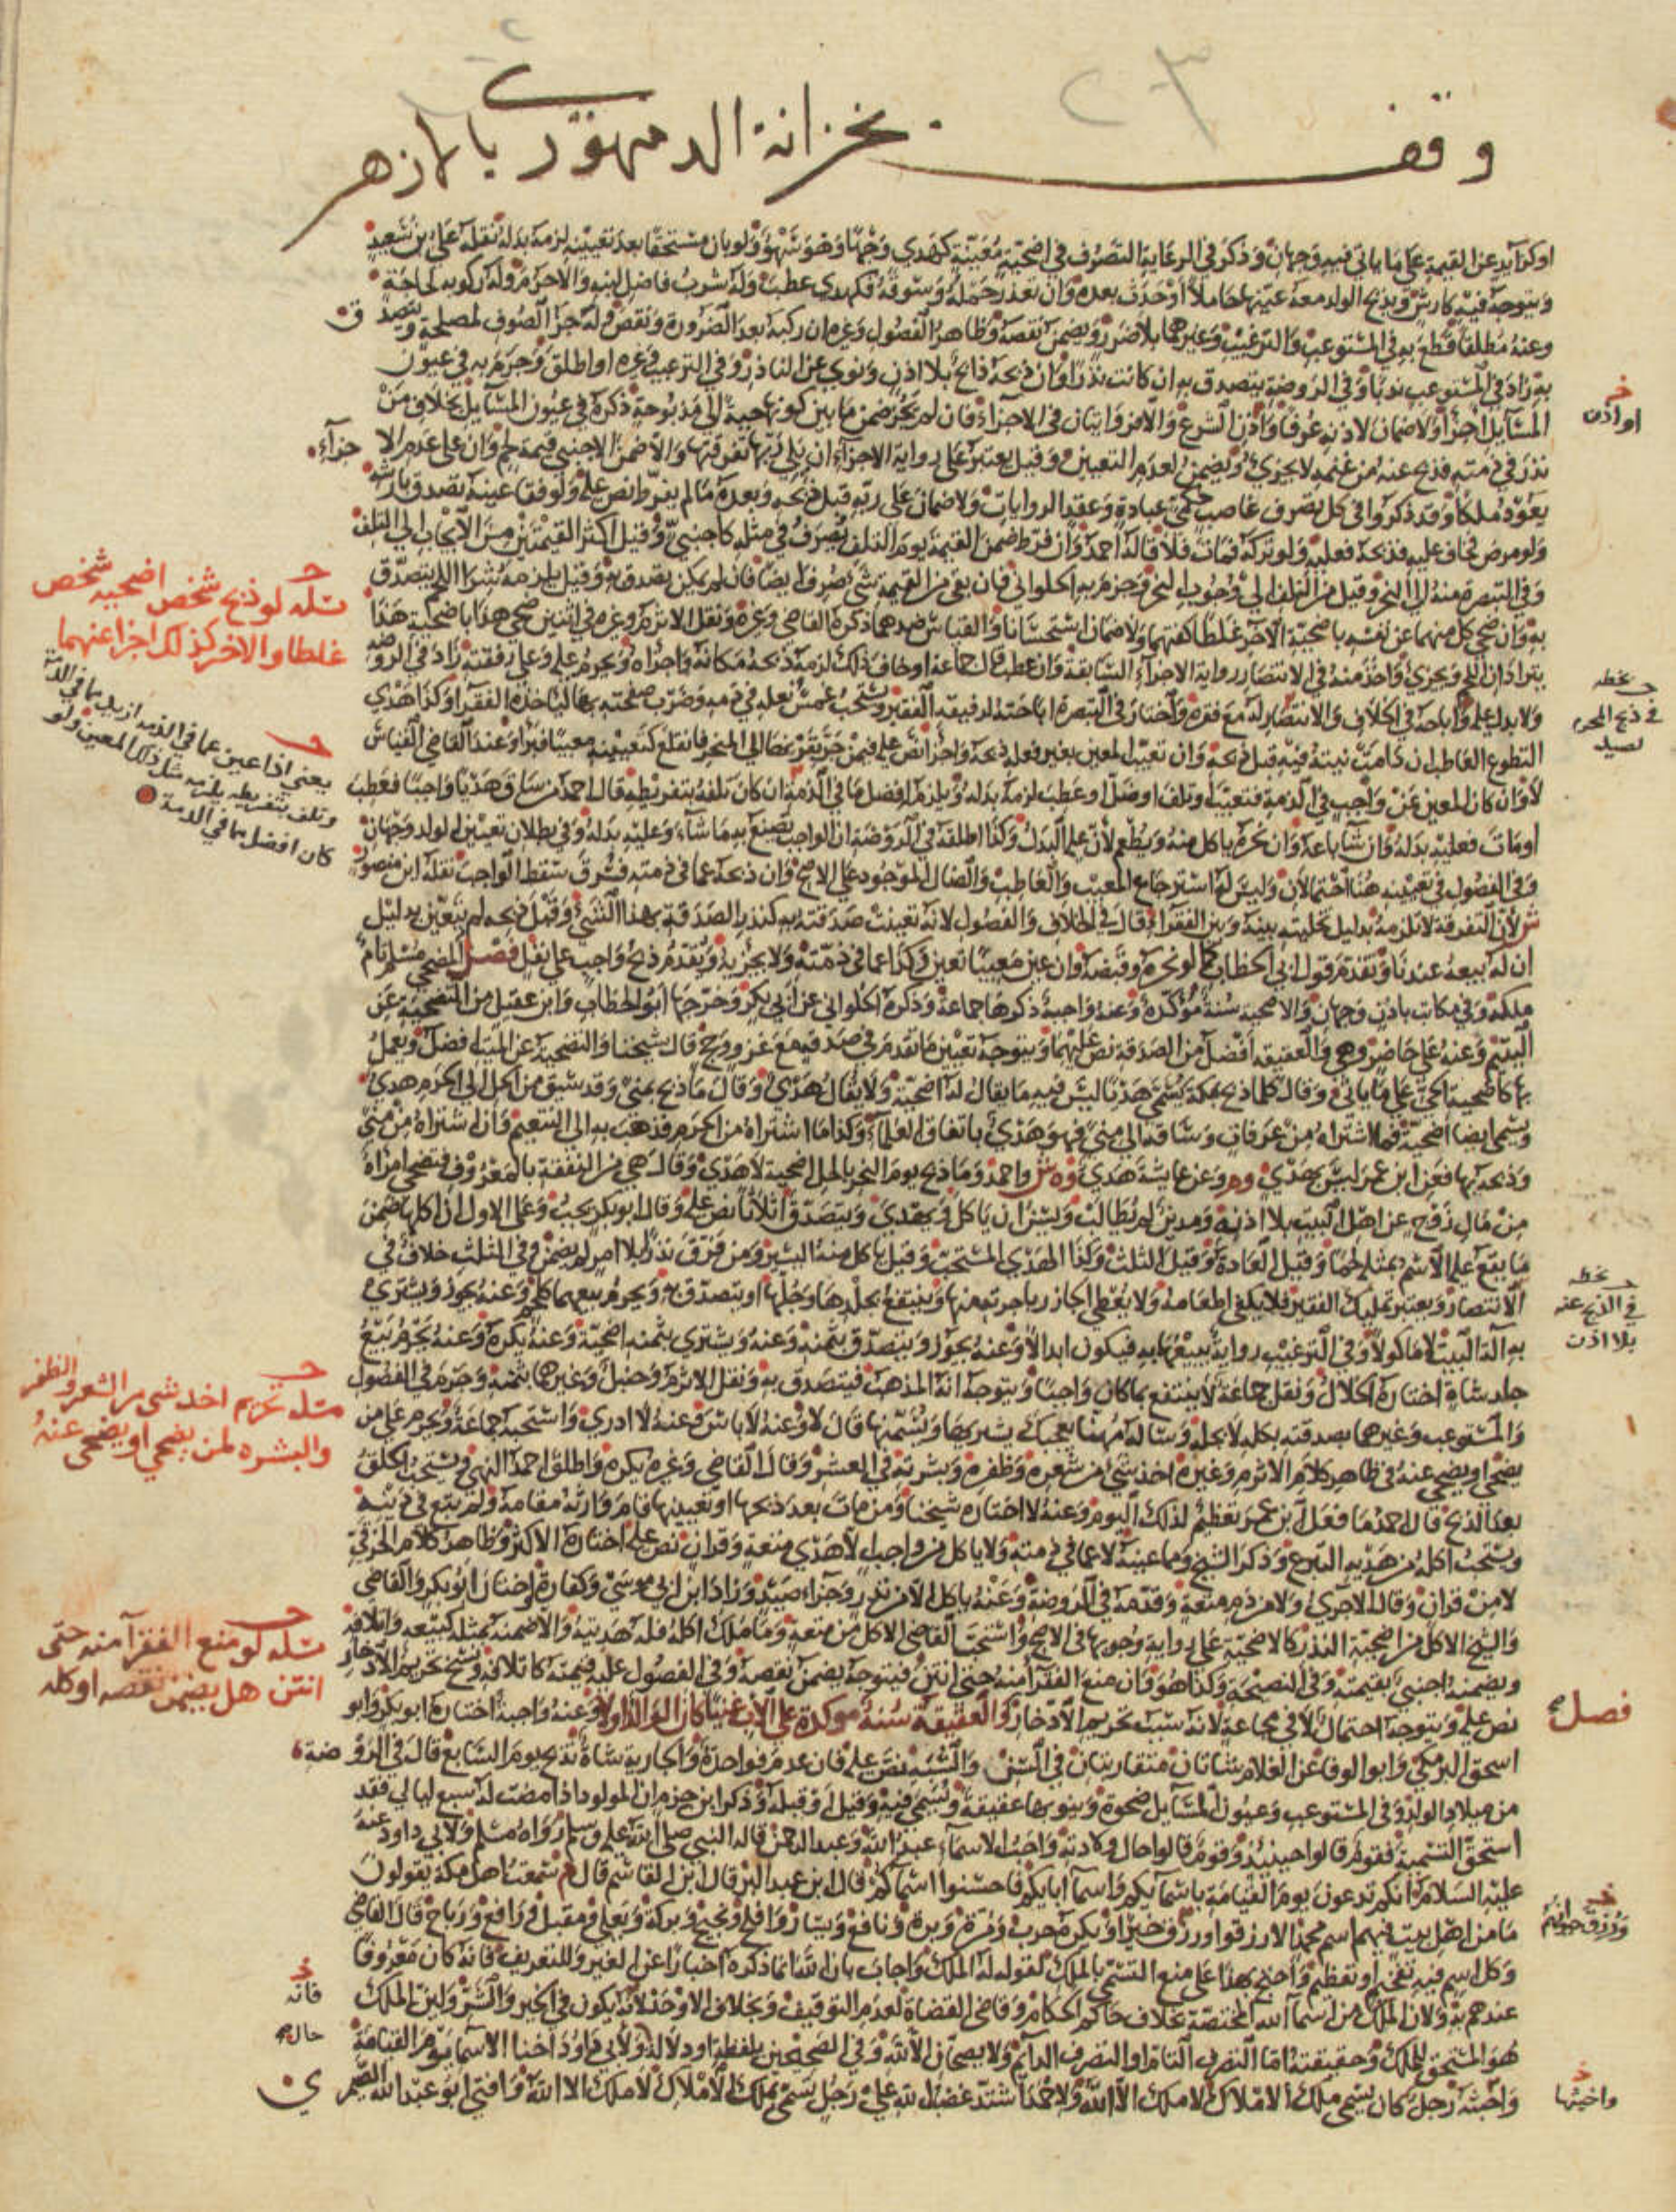 وقف بخزانة الدمنهوري بالازهر
او كزائد عن القيمة على ما ياتي فيه وجهان وذكر في الرعاية التصرف في اضحية معينة كهدي وجها وهو سهو ولو بان مستحقا بعد تعيينه لزمه بدله نقله علي بن سعيد
ويتوجه فيه كارش ويذبح الولد معه عينها حاملا او حدث بعده وان تعذر حمله وسوقه فكهدي عطب وله شرب فاضل لبنه والا حرم وله ركوبه لحاجة
وعنه مطلقا قطع به في المستوعب والترغيب وغيرهما بلا ضرر ويضمن نقصه وظاهر الفصول وغيره ان ركبه بعد الضرورة ونقص وله جز الصوف لمصلحة ويتصدق
به زاد في المستوعب ندبا وفي الروضة يتصدق به ان كانت نذرا وان ذبحه ذابح بلا اذن ونوى عن الناذر وفي الترغيب وغيره او اطلق وجزم به في عيون
المسايل اجزا ولا ضمان لاذنه عرفا واذن الشرع والا فروايتان في الاجزاء فان لم يجز ضمن ما بين كونها حية الى مذبوحة ذكره في عيون المسايل بخلاف من
نذر في ذمته فذبح عنه من غنمه لا يجزئ ويضمن لعدم التعيين وقيل يعتبر على رواية الاجزاء ان يلي ربها تفرقتها والا ضمن الاجنبي قيمة لحم وان على عدم الاجزاء
يعود ملكا وقد ذكروا في كل تصرف غاصب حكمي عبادة وعقد الروايات ولا ضمان على ربه قبل ذبحه وبعده ما لم يفرط نص عليه ولو فقا عينه تصدق بارشه
ولو مرض فخاف عليه فذبحه فعليه ولو تركه فمات فلا قاله احمد وان فرط ضمن القيمة يوم التلف يصرف في مثله كاجنبي وقيل اكثر القيمتين من الايجاب الى التلف
وفي التبصرة منه الى النحر وقيل من التلف الى وجوب النحر وجزم به الحلواني فان بقي من القيمة شي صرف ايضا فان لم يمكن تصدق به وقيل يلزمه شرا لحم يتصدق
به وان ضحى كل منهما عن نفسه باضحية الاخر غلطا كفتهما ولا ضمان استحسانا والقياس ضدهما ذكره القاضي وغيره ونقل الاثرم وغيره في اثنين ضحى هذا باضحية هذا
يترادان اللحم ويجزئ واخذ منه في الانتصار رواية الاجزاء السابقة وان عطب قال جماعة او خاف ذلك لزمه ذبحه مكانه واجزاه ويحرم عليه وعلى رفقته زاد في الروضة
ولا بدل عليه واباحه في الخلاف والانتصار له مع فقره واختار في التبصرة اباحته لرفيقه الفقير ويستحب غمس نعله في دمه وضرب صفحته بها لياخذه الفقرا وكذا هدي
التطوع العاطب ان دامت نيته فيه قبل ذبحه وان تعيب المعين بغير فعله ذبحه واجزا نص عليه فيمن جر بقرنها الى المنحر فانقلع كتعيينه معيبا فبرا وعند القاضي القياس
لا وان كان المعين عن واجب في الذمة فتعيب او تلف او ضل او عطب لزمه بدله ويلزم افضل مما في الذمة ان كان تلفه بتفريطه قال احمد من ساق هديا واجبا فعطب
او مات فعليه بدله وان شا باعه وان نحره ياكل منه ويطعم لان عليه البدل وكذا اطلقه في الروضة ان الواجب يصنع به ما شاء وعليه بدله وفي بطلان تعيين الولد وجهان
وفي الفصول في تعيينه هنا احتمالان وليس له استرجاع المعيب والعاطب والضال الموجود على الاصح وان ذبحه عما في ذمته فسرق سقط الواجب نقله ابن منصور
ش لان التفرقة لا تلزمه بدليل تخليته بينه وبين الفقراء قال في الخلاف والفصول لانه تعينت صدقته به كنذر الصدقة بهذا الشي وقبل ذبحه لم يتعين بدليل
ان له بيعه عندنا وتقدم قول ابي الخطاب كما لو نحره وقبضه وان عين معيبا تعين وكذا عما في ذمته ولا يجزيه ويقدم ذبح واجب على نفل فصل المضحي مسلم تام
ملكه وفي مكاتب باذن وجهان والاضحية سنة مؤكدة وعنه واجبة ذكرها جماعة وذكره الحلواني عن ابي بكر وخرجها ابو الخطاب وابن عقيل من التضحية عن
اليتيم وعنه على حاضر وهي والعقيقة افضل من الصدقة نص عليهما ويتوجه تعيين ما تقدم في صدقة مع غزو وحج قال شيخنا والتضحية عن الميت افضل ويعمل
بها كاضحية الحي على ما ياتي وقال كلما ذبح بمكة يسمى هديا ليس فيه ما يقال له اضحية ولا يقال هدي وقال ما ذبح بمنى وقد سيق من الحل الى الحرم هدي
ويسمى ايضا اضحية فما اشتراه من عرفات وساقه الى منى فهو هدي باتفاق العلماء وكذا ما اشتراه من الحرم فذهب به الى التنعيم وان اشتراه من منى
وذبحه بها فعن ابن عمر ليس بهدي وهو وعن عايشة هدي وه ش واحمد وما ذبح يوم النحر بالحل اضحية لا هدي وقال هي من النفقة بالمعروف فتضحي امراة
من مال زوج عن اهل البيت بلا اذنه ومدين لم يطالب ويسن ان ياكل ويهدي ويتصدق اثلاثا نص عليه وقال ابو بكر يجب وعلى الاول ان اكلها ضمن
ما يقع عليه الاسم بمثله لحما وقيل العادة وقيل الثلث وكذا الهدي المستحب وقيل ياكل منه اليسير ومن فرق نذرا بلا امر لم يضمن وفي الثلث خلاف في
الانتصار ويعتبر تمليك الفقير فلا يكفي اطعامه ولا يعطي الجازر باجرته منها وينتفع بجلدها وجلها او يتصدق به ويحرم بيعهما كلحم وعنه يجوز ويشتري
به الة البيت لا ماكولا وفي الترغيب رواية يبيعها به فيكون ابدالا وعنه يجوز ويتصدق بثمنه وعنه ويشتري بثمنه اضحية وعنه يكره وعنه يحرم بيع
جلد شاة اختاره الخلال ونقل جماعة لا ينتفع بما كان واجبا ويتوجه انه المذهب فيتصدق به ونقل الاثرم وحنبل وغيرهما بثمنه وجزم في الفصول
والمستوعب وغيرهما بصدقته بكله لا بجله وساله مهنا يعجبك يشتريها ويسمنها قال لا وعنه لا باس وعنه لا ادري واستحبه جماعة ويحرم على من
يضحي او يضحى عنه في ظاهر كلام الاثرم وغيره اخذ شي من شعره وظفره وبشرته في العشر وقال القاضي وغيره يكره واطلق احمد النهي ويستحب الحلق
بعد الذبح قال احمد ما فعل ابن عمر تعظيم لذلك اليوم وعنه لا اختاره شيخنا ومن مات بعد ذبحها او تعيينها قام وارثه مقامه ولم يبع في دينه
ويستحب اكله من هديه التبرع وذكر الشيخ وما عينه لا عما في ذمته ولا ياكل من واجب الا هدي متعة وقران نص عليه اختاره الاكثر وظاهر كلام الخرقي
لا من قران وقال الاجري ولا من دم متعة وقدمه في الروضة وعنه ياكل الا من نذر وجزاء صيد وزاد ابن ابي موسى وكفارة واختار ابو بكر والقاضي
والشيخ الاكل من اضحية النذر كالاضحية على رواية وجوبها في الاصح واستحب القاضي الاكل من متعة وما ملك اكله فله هديته والا ضمنه بمثله كبيعه واتلافه
ويضمنه اجنبي بقيمته وفي النصيحة وكذا هو وان منع الفقرا منه حتى انتن فيتوجه يضمن نقصه وفي الفصول عليه قيمته كاتلافه ونسخ تحريم الادخار
نص عليه ويتوجه احتمال لا في مجاعة لانه سبب تحريم الادخار والعقيقة سنة موكدة على الاب غنيا كان الوالد او لا وعنه واجبة اختاره ابو بكر وابو
اسحق البرمكي وابو الوفا عن الغلام شاتان متقاربتان في السن والشبه نص عليه فان عدم فواحدة والجارية شاة تذبح يوم السابع قال في الروضة
من ميلاد الولد وفي المستوعب وعيون المسايل ضحوة وينويها عقيقة ويسمى فيه وقيل او قبله وذكر ابن حزم ان المولود اذا مضت له سبع ليالي فقد
استحق التسمية فقوم قالوا حينئذ وقوم قالوا حال ولادته واحب الاسماء عبد الله وعبد الرحمن قاله النبي صلى الله عليه وسلم رواه مسلم ولابي داود عنه
عليه السلام انكم تدعون يوم القيامة باسمائكم واسما ابايكم فاحسنوا اسماكم قال ابن عبد البر قال ابن القاسم قال م سمعت اهل مكة يقولون
ما من اهل بيت فيهم اسم محمد الا رزقوا ورزق خيرا ويكره حرب ومرة وبرة ونافع ويسار وافلح ونجيح وبركة ويعلى ومقبل ورافع ورباح قال القاضي
وكل اسم فيه تفخيم او تعظيم واحتج بهذا على منع التسمي بالملك لقوله له الملك واجاب بان الله انما ذكره اخبارا عن الغير وللتعريف فانه كان معروفا
عندهم به ولان الملك من اسماء الله المختصة بخلاف حاكم الحكام وقاضي القضاة لعدم التوقيف وبخلاف الاوحد لانه يكون في الخير والشر ولان الملك
هو المستحق للملك وحقيقته اما التصرف التام او التصرف الدائم ولا يصحان الا لله وفي الصحيحين بلفظه او دلاله ولابي داود اخنا الاسما يوم القيامة
واخبثه رجل كان يسمى ملك الاملاك لا ملك الا الله ولاحمد اشتد غضب الله على رجل تسمى بملك الاملاك لا ملك الا الله وافتى ابو عبد الله الصيمري
او اذن
مسئلة لو ذبح شخص اضحية شخص
غلطا والاخر كذلك اجزا عنهما
يعني اذا عين عما في الذمه ازيد مما في الذمة
وتلف بتفريطه يلزمه مثل ذلك المعين ولو
كان افضل مما في الذمة
بخطه
في ذبح المحرم
لصيد
بخطه
في الذبح عنه
بلا اذن
مسئلة تحريم اخذ شي من الشعر والظفر
والبشره لمن يضحي او يضحى عنه
مسئلة لو منع الفقرا منه حتى
انتن هل يضمن نقصه او كله
فصل
ورزق جيرانهم
فانه
حال
واخبثها